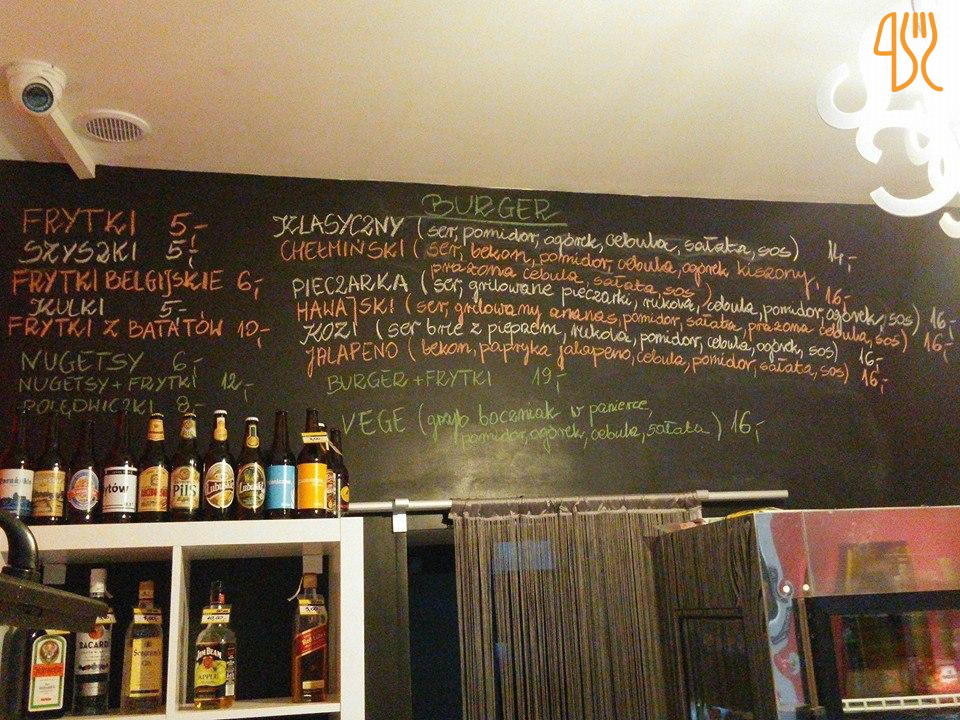 FRYTKI 5,-
SZYSZKI 5,-
FRYTKI BELGIJSKIE 6,-
KULKI 5-
FRYTKI Z BATATÓW 10,-
NUGETSY 6,-
NUGETSY + FRYTKI 12,-
POLĘDWICZKI 8,-
BURGER
KLASYCZNY (ser, pomidor, ogórek, cebula, sałata, sos) 14,-
CHEŁMIŃSKI (ser, bekon, pomidor, cebula, ogórek kiszony,
prażona cebula, sałata, sos) 16,-
PIECZARKA (ser, grilowane pieczarki, rukola, cebula, pomidor, ogórek, sos) 16,-
HAWAJSKI (ser, grilowany ananas, pomidor, sałata, prażona cebula, sos) 16,-
KOZI (ser brie z pieprzem, rukola, pomidor, cebula, ogórek, sos) 16,-
JALAPENO (bekon, papryka jalapeno, cebula, pomidor, sałata, sos) 16,-
BURGER + FRYTKI 19,-
VEGE (grzyb boczniak w panierce,
pomidor, ogórek, cebula, sałata) 16,-
PILS
Lubuskie
Lubuskie
BACARDI
Seagram's
Gin
JIM BEAM
APPLE